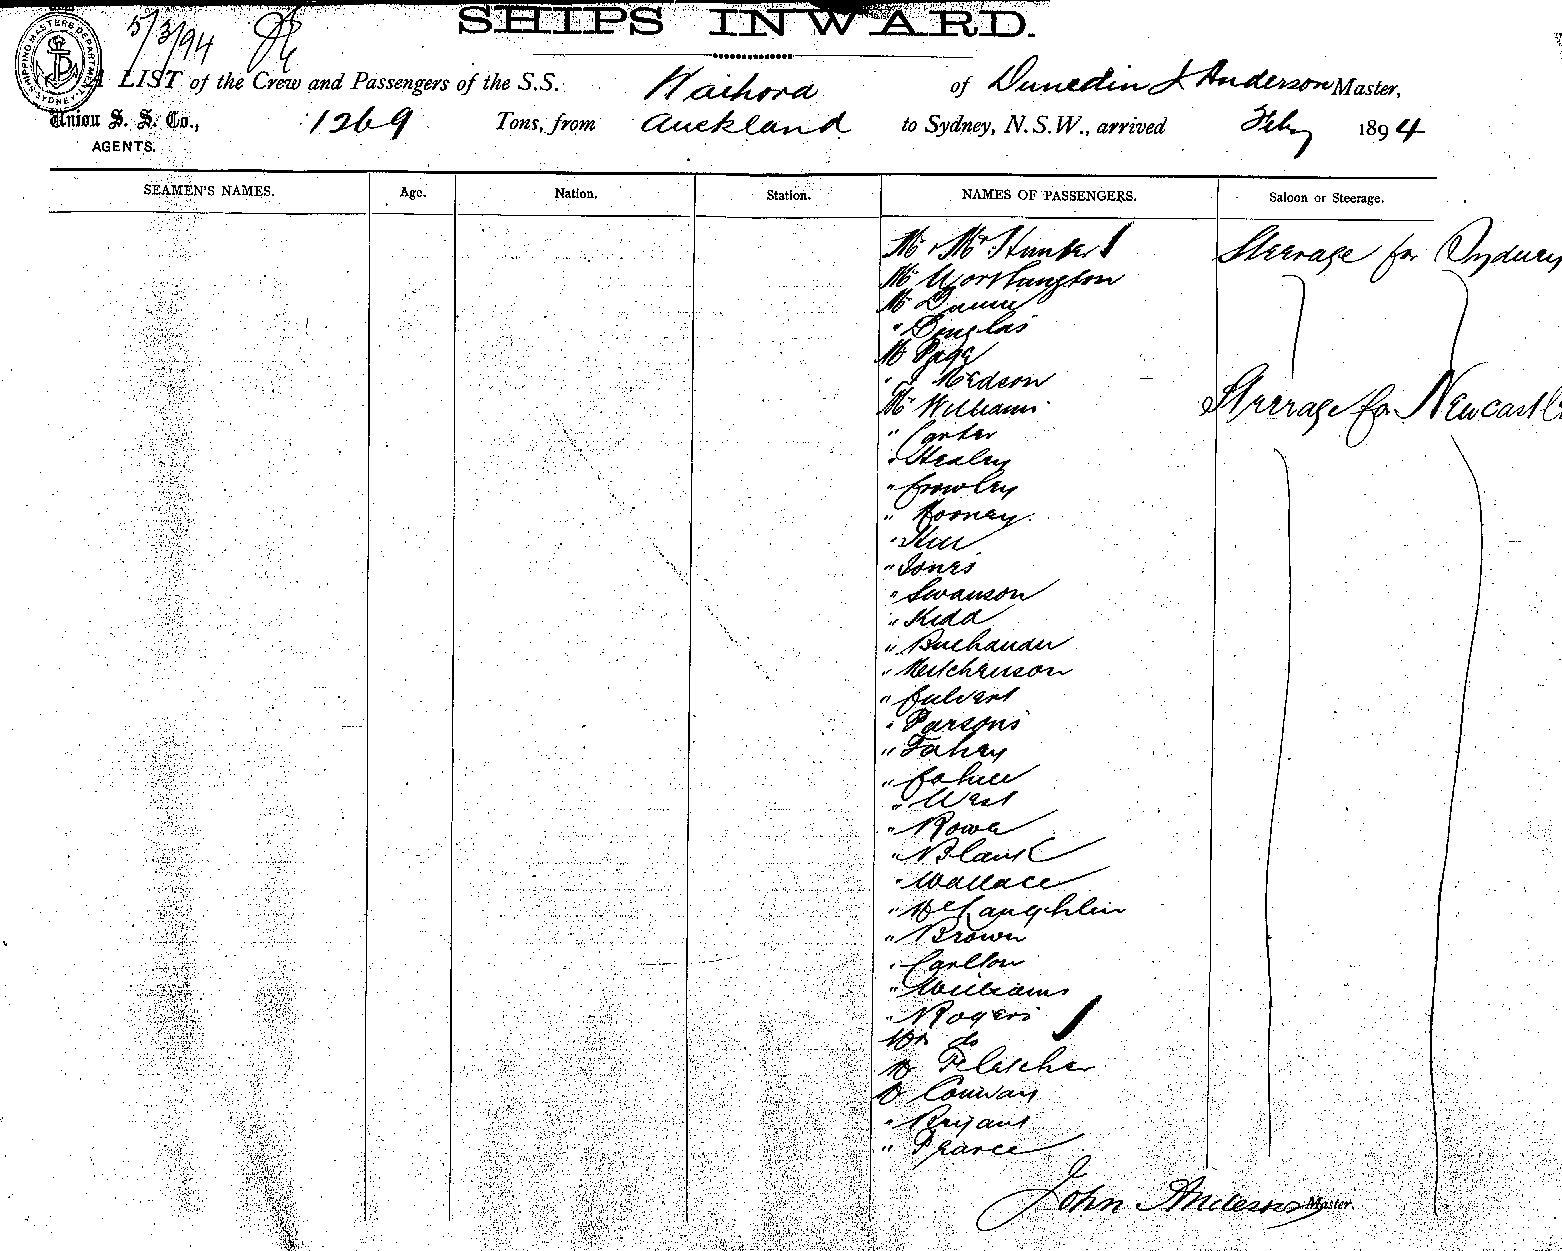 SHIPS INWARD.
5/3/94
SHIPPING MASTERS DEPARTMENT SYDNEY
A LIST of the Crew and Passengers of the S.S. Waihora of Dunedin J Anderson Master,
Union S. S. Co., 1269 Tons, from Auckland to Sydney, N.S.W., arrived Feby 1894
AGENTS.
SEAMEN'S NAMES. Age. Nation. Station. NAMES OF PASSENGERS. Saloon or Steerage.
Mr Mrs Hunter Steerage for Sydney
Mr Worthington
Mr
" Douglas
Mr Page
" Medson
Mr Williams Steerage for Newcastle
" Carter
" Healey
" Crowley
" Cooney
" Kerr
" Jones
" Swanson
" Kidd
" Buchanan
" Hutchenson
" Culvert
" Parsons
" Fahey
"
" West
" Rowe
" Blank
" Wallace
" McLaughlin
" Brown
" Carlton
" Williams
" Rogers
Mrs do
Mr Fletcher
Mr Conway
" Bryant
" Pearce
John Anderson Master.